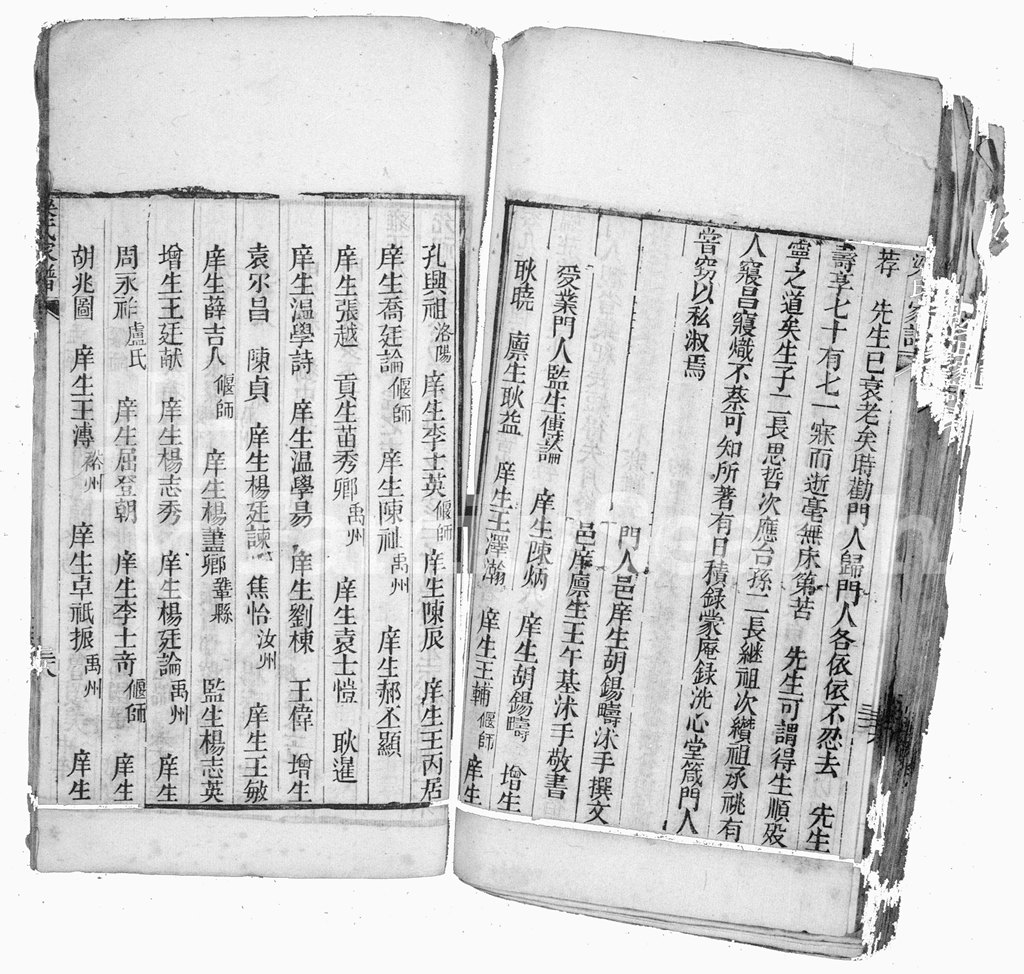 荐　先生已衰老矣時勸門人歸門人各依依不忍去　先生
壽享七十有七一寐而逝毫無床第苦　先生可謂得生順歿
寧之道矣生子二長思哲次應台孫二長繼祖次纘祖承祧有
人寢昌寢熾不蔡可知所著有日積録蒙庵録洗心堂箴門人
嘗窃以私淑焉
門人邑庠生胡錫疇沐手撰文
邑庠廪生王午基沐手敬書
受業門人監生傅論　庠生陳炳　庠生胡錫疇　增生
耿曉　廪生耿益　庠生王澤瀚　庠生王輔偃師　庠生
孔興祖洛陽　庠生李士英偃師　庠生陳辰　庠生王丙居
庠生喬廷論偃師　庠生陳祉禹州　庠生郝丕顯
庠生張越　貢生苗秀卿禹州　庠生袁士愷　耿暹
庠生温學詩　庠生温學易　庠生劉棟　王偉　增生
袁尔昌　陳貞　庠生楊廷諫　焦怡汝州　庠生王敏
庠生薛吉人偃師　庠生楊藎卿鞏縣　監生楊志英
增生王廷献　庠生楊志秀　庠生楊廷論禹州　庠生
周永祚盧氏　庠生屈登朝　庠生李士奇偃師　庠生
胡兆圖　庠生王溥裕州　庠生卓祇振禹州　庠生
氏家譜